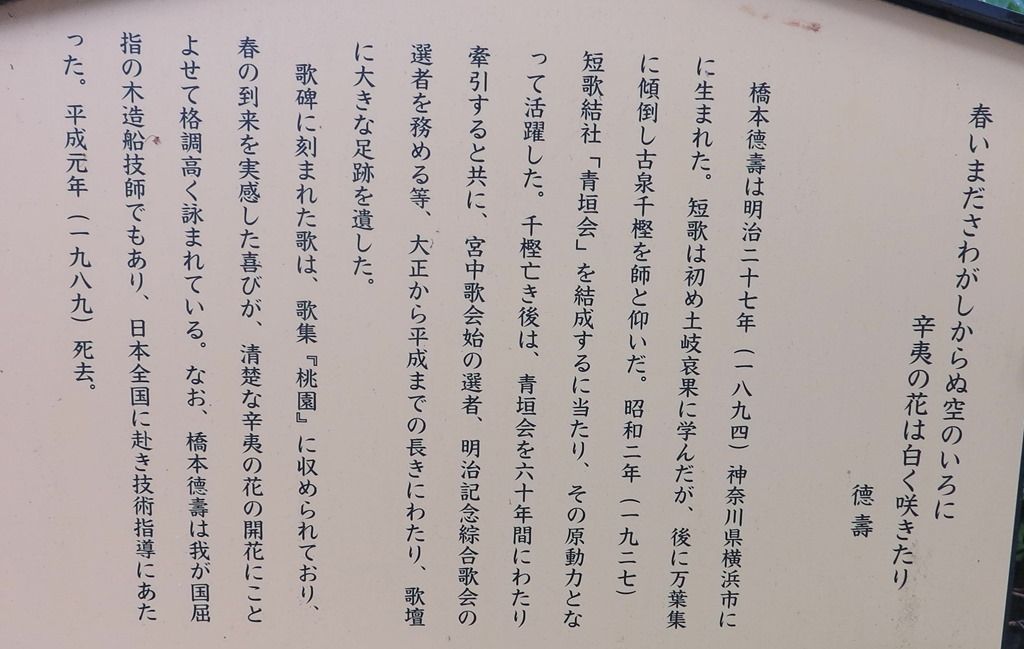 春いまださわがしからぬ空のいろに
辛夷の花は白く咲きたり
德壽
橋本德壽は明治二十七年（一八九四）神奈川県横浜市に
に生まれた。短歌は初め土岐哀果に学んだが、後に万葉集
に傾倒し古泉千樫を師と仰いだ。昭和二年（一九二七）
短歌結社「青垣会」を結成するに当たり、その原動力とな
って活躍した。千樫亡き後は、青垣会を六十年間にわたり
牽引すると共に、宮中歌会始の選者、明治記念綜合歌会の
選者を務める等、大正から平成までの長きにわたり、歌壇
に大きな足跡を遺した。
歌碑に刻まれた歌は、歌集『桃園』に収められており、
春の到来を実感した喜びが、清楚な辛夷の花の開花にこと
よせて格調高く詠まれている。なお、橋本德壽は我が国屈
指の木造船技師でもあり、日本全国に赴き技術指導にあた
った。平成元年（一九八九）死去。